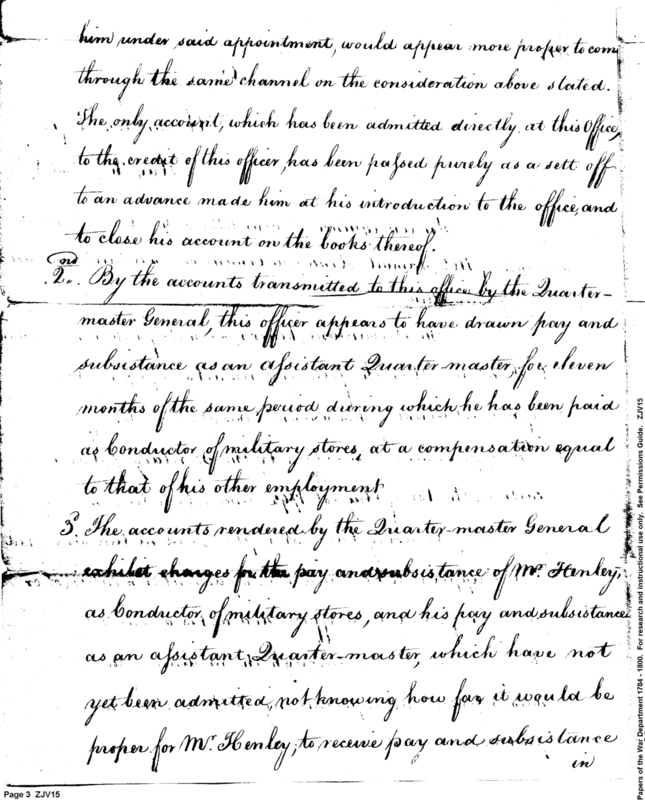 him under said appointment, would appear more proper to com
through the same channel on the consideration above stated.
The only account, which has been admitted directly at this Office,
to the credit of this officer, has been passed purely as a sett off
to an advance made him at his introduction to the office, and
to close his account on the books thereof.
2nd. By the accounts transmitted to this office by the Quarter-
master General, this officer appears to have drawn pay and
subsistance as an assistant Quarter-master, for eleven
months of the same period during which he has been paid
as Conductor of military stores, at a compensation equal
to that of his other employment
3d. The accounts rendered by the Quarter-master General
exhibit charges for the pay and subsistance of Mr. Henley,
as Conductor of military stores, and his pay and subsistance
as an assistant Quarter-master, which have not
yet been admitted, not knowing how far it would be
proper for Mr. Henley, to receive pay and subsistance
in
Page 3 ZJV15
Papers of the War Department 1784 - 1800. For research and instructional use only. See Permissions Guide. ZJV15